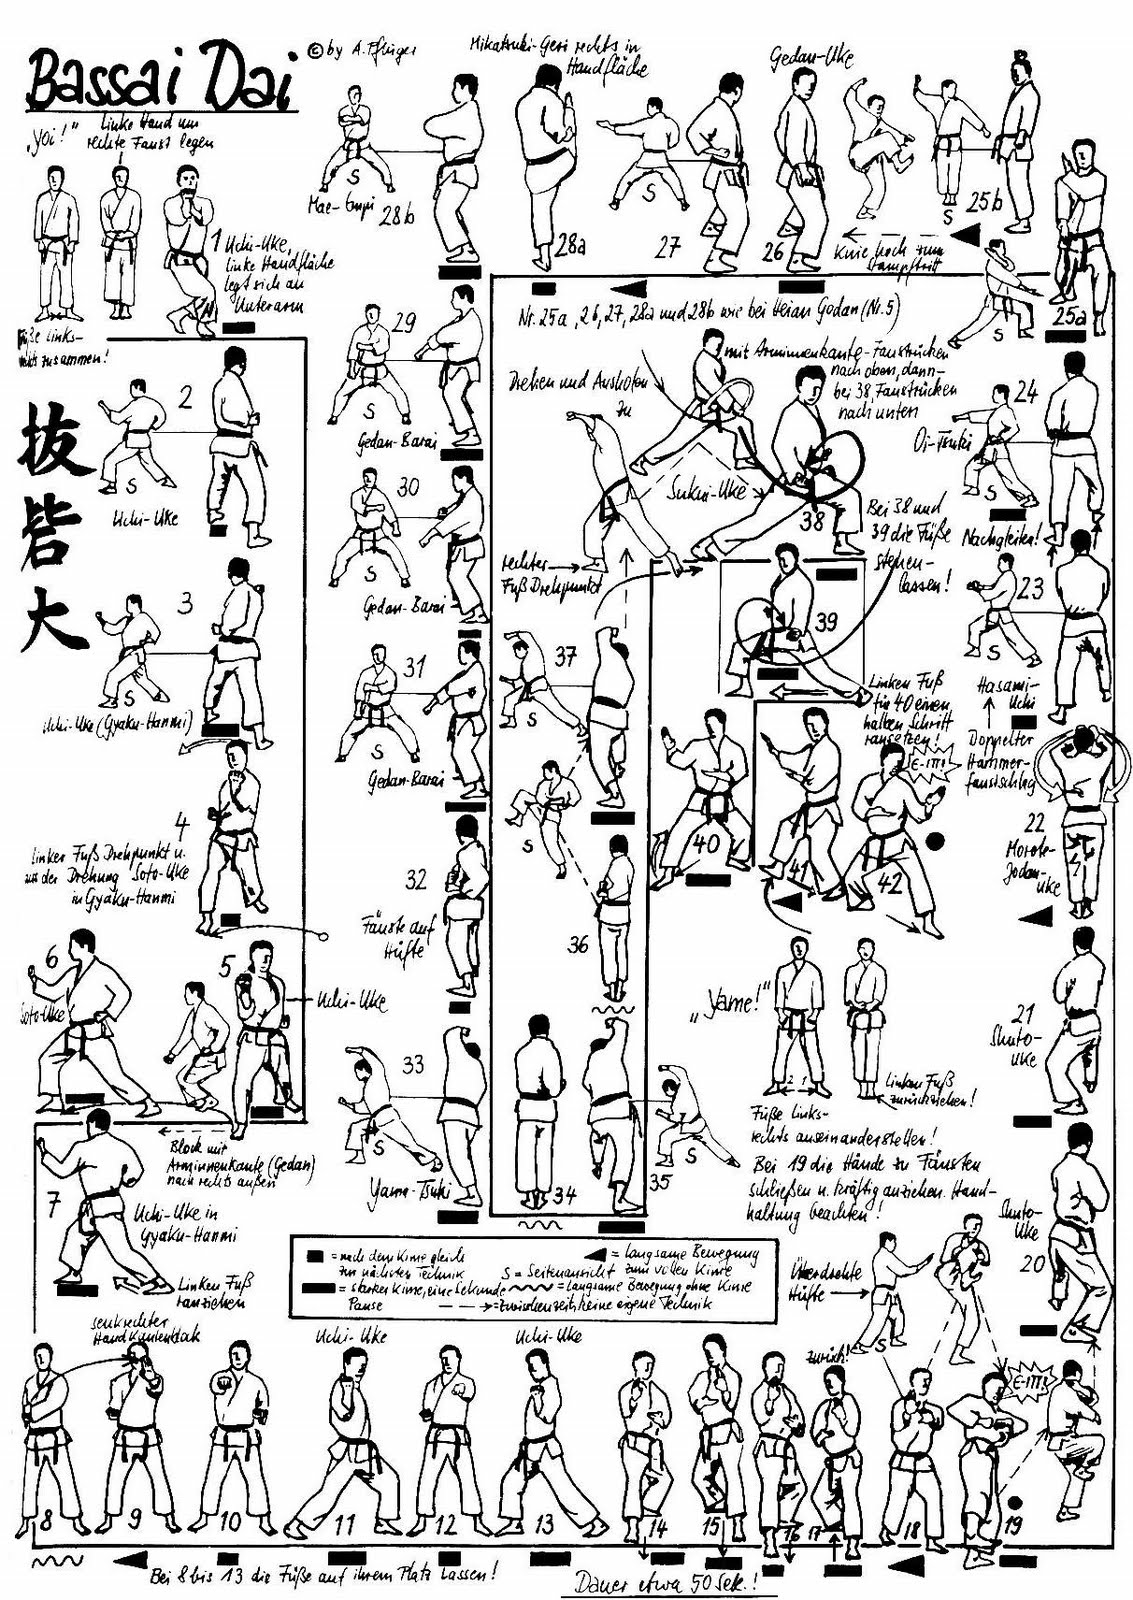 Bassai Dai
© by A. Pflüger
"Yoi!"
linke Hand um
rechte Faust legen
Füße links-
rechts zusammen!
1 Uchi-Uke,
linke Handfläche
legt sich an
Unterarm
抜
砦
大
2
S
Uchi-Uke
3
S
Uchi-Uke (Gyaku-Hanmi)
4
linker Fuß Drehpunkt u.
aus der Drehung Soto-Uke
in Gyaku-Hanmi
5
Uchi-Uke
6
Soto-Uke
Block mit
Arminnenkante (Gedan)
nach rechts außen
7
Uchi-Uke in
Gyaku-Hanmi
Linken Fuß
ranziehen
senkrechter
Handkantenblock
8
9
10
Uchi-Uke
11
12
Uchi-Uke
13
14
15
16
17
zurück!
18
19
E-iii!
Bei 8 bis 13 die Füße auf ihrem Platz lassen!
Dauer etwa 50 Sek.!
Überdrehte
Hüfte
S
Shuto-
Uke
20
21
Shuto-
Uke
22
Morote-
Jodan-
Uke
23
S
Hasami-
Uchi
Doppelter
Hammer-
faustschlag
24
Oi-Tsuki
S
Nachgleiten!
25a
S
25b
S
Knie hoch zum
Stampftritt
Gedan-Uke
26
27
S
Mikatsuki-Geri rechts in
Handfläche
28a
S
Mae-Empi
28b
Nr. 25a, 26, 27, 28a und 28b wie bei Heian Godan (Nr. 5)
29
S
Gedan-Barai
30
S
Gedan-Barai
31
S
Gedan-Barai
32
Fäuste auf
Hüfte
33
S
Yama-Tsuki
34
35
S
36
S
37
S
Drehen und Ausholen
zu
mit Arminnenkante-Faustrücken
nach oben, dann
bei 38 Faustrücken
nach unten
Sukui-Uke
38
rechter
Fuß Drehpunkt
Bei 38 und
39 die Füße
stehen-
lassen!
39
Linken Fuß
für 40 einen
halben Schritt
ransetzen!
40
41
42
E-iii!
"Yame!"
2 1
Linken Fuß
zurückziehen!
Füße links-
rechts auseinanderstellen!
Bei 19 die Hände zu Fäusten
schließen u. kräftig anziehen. Hand-
haltung beachten!
= nach dem Kime gleich
zur nächsten Technik
= starker Kime, eine Sekunde
Pause
= langsame Bewegung
zum vollen Kime
S = Seitenansicht
= langsame Bewegung ohne Kime
= Zwischenzeit, keine eigene Technik